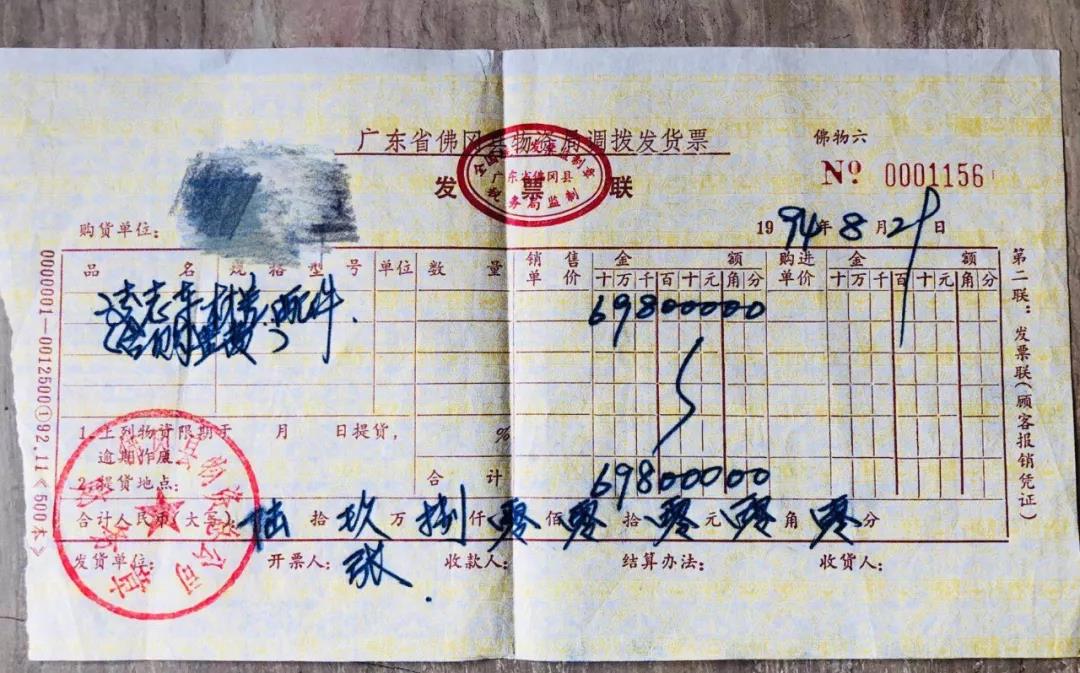 广东省佛冈县物资局调拨发货票
佛物六
发票联
No 0001156
全国统一发票监制章
广东省佛冈县
税务局监制
购货单位:
1994年8月29日
品名 规格型号 单位 数量 销售单价 金额 十万千百十元角分 购进单价 金额 十万千百十元角分
凌志车材差.配件. 69800000
(含
1.上列物资限期于 月 日提货, %
逾期作废
2.提货地点: 合计 69800000
合计人民币(大写): 陆拾玖万捌仟零佰零拾零元零角零分
发货单位: 开票人: 张 收款人: 结算办法: 收货人:
第二联:发票联(顾客报销凭证)
0000001—0012500①92.11《500本》